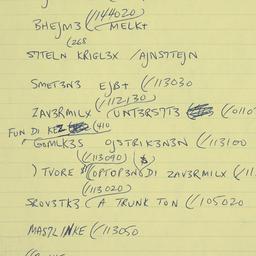 (/144020)
BHEJM3 MELK+
(268
S7TELN KRIGL3X /AJNS7TEJN
SMET3N3 EJB+ (/113030
(/112130)
ZAV3RMILX UNT3RS7T3 (/0110
FUN DI KEZ (410
GOMLK3S OJSTRIK3N3N (/113100
(/113090)
) TVORE (OPTOP3N) DI ZAV3RMILX (/11
(/113020)
SROV3TK3 (A TRUNK TON (/105020
MAS7LINKE (/113050